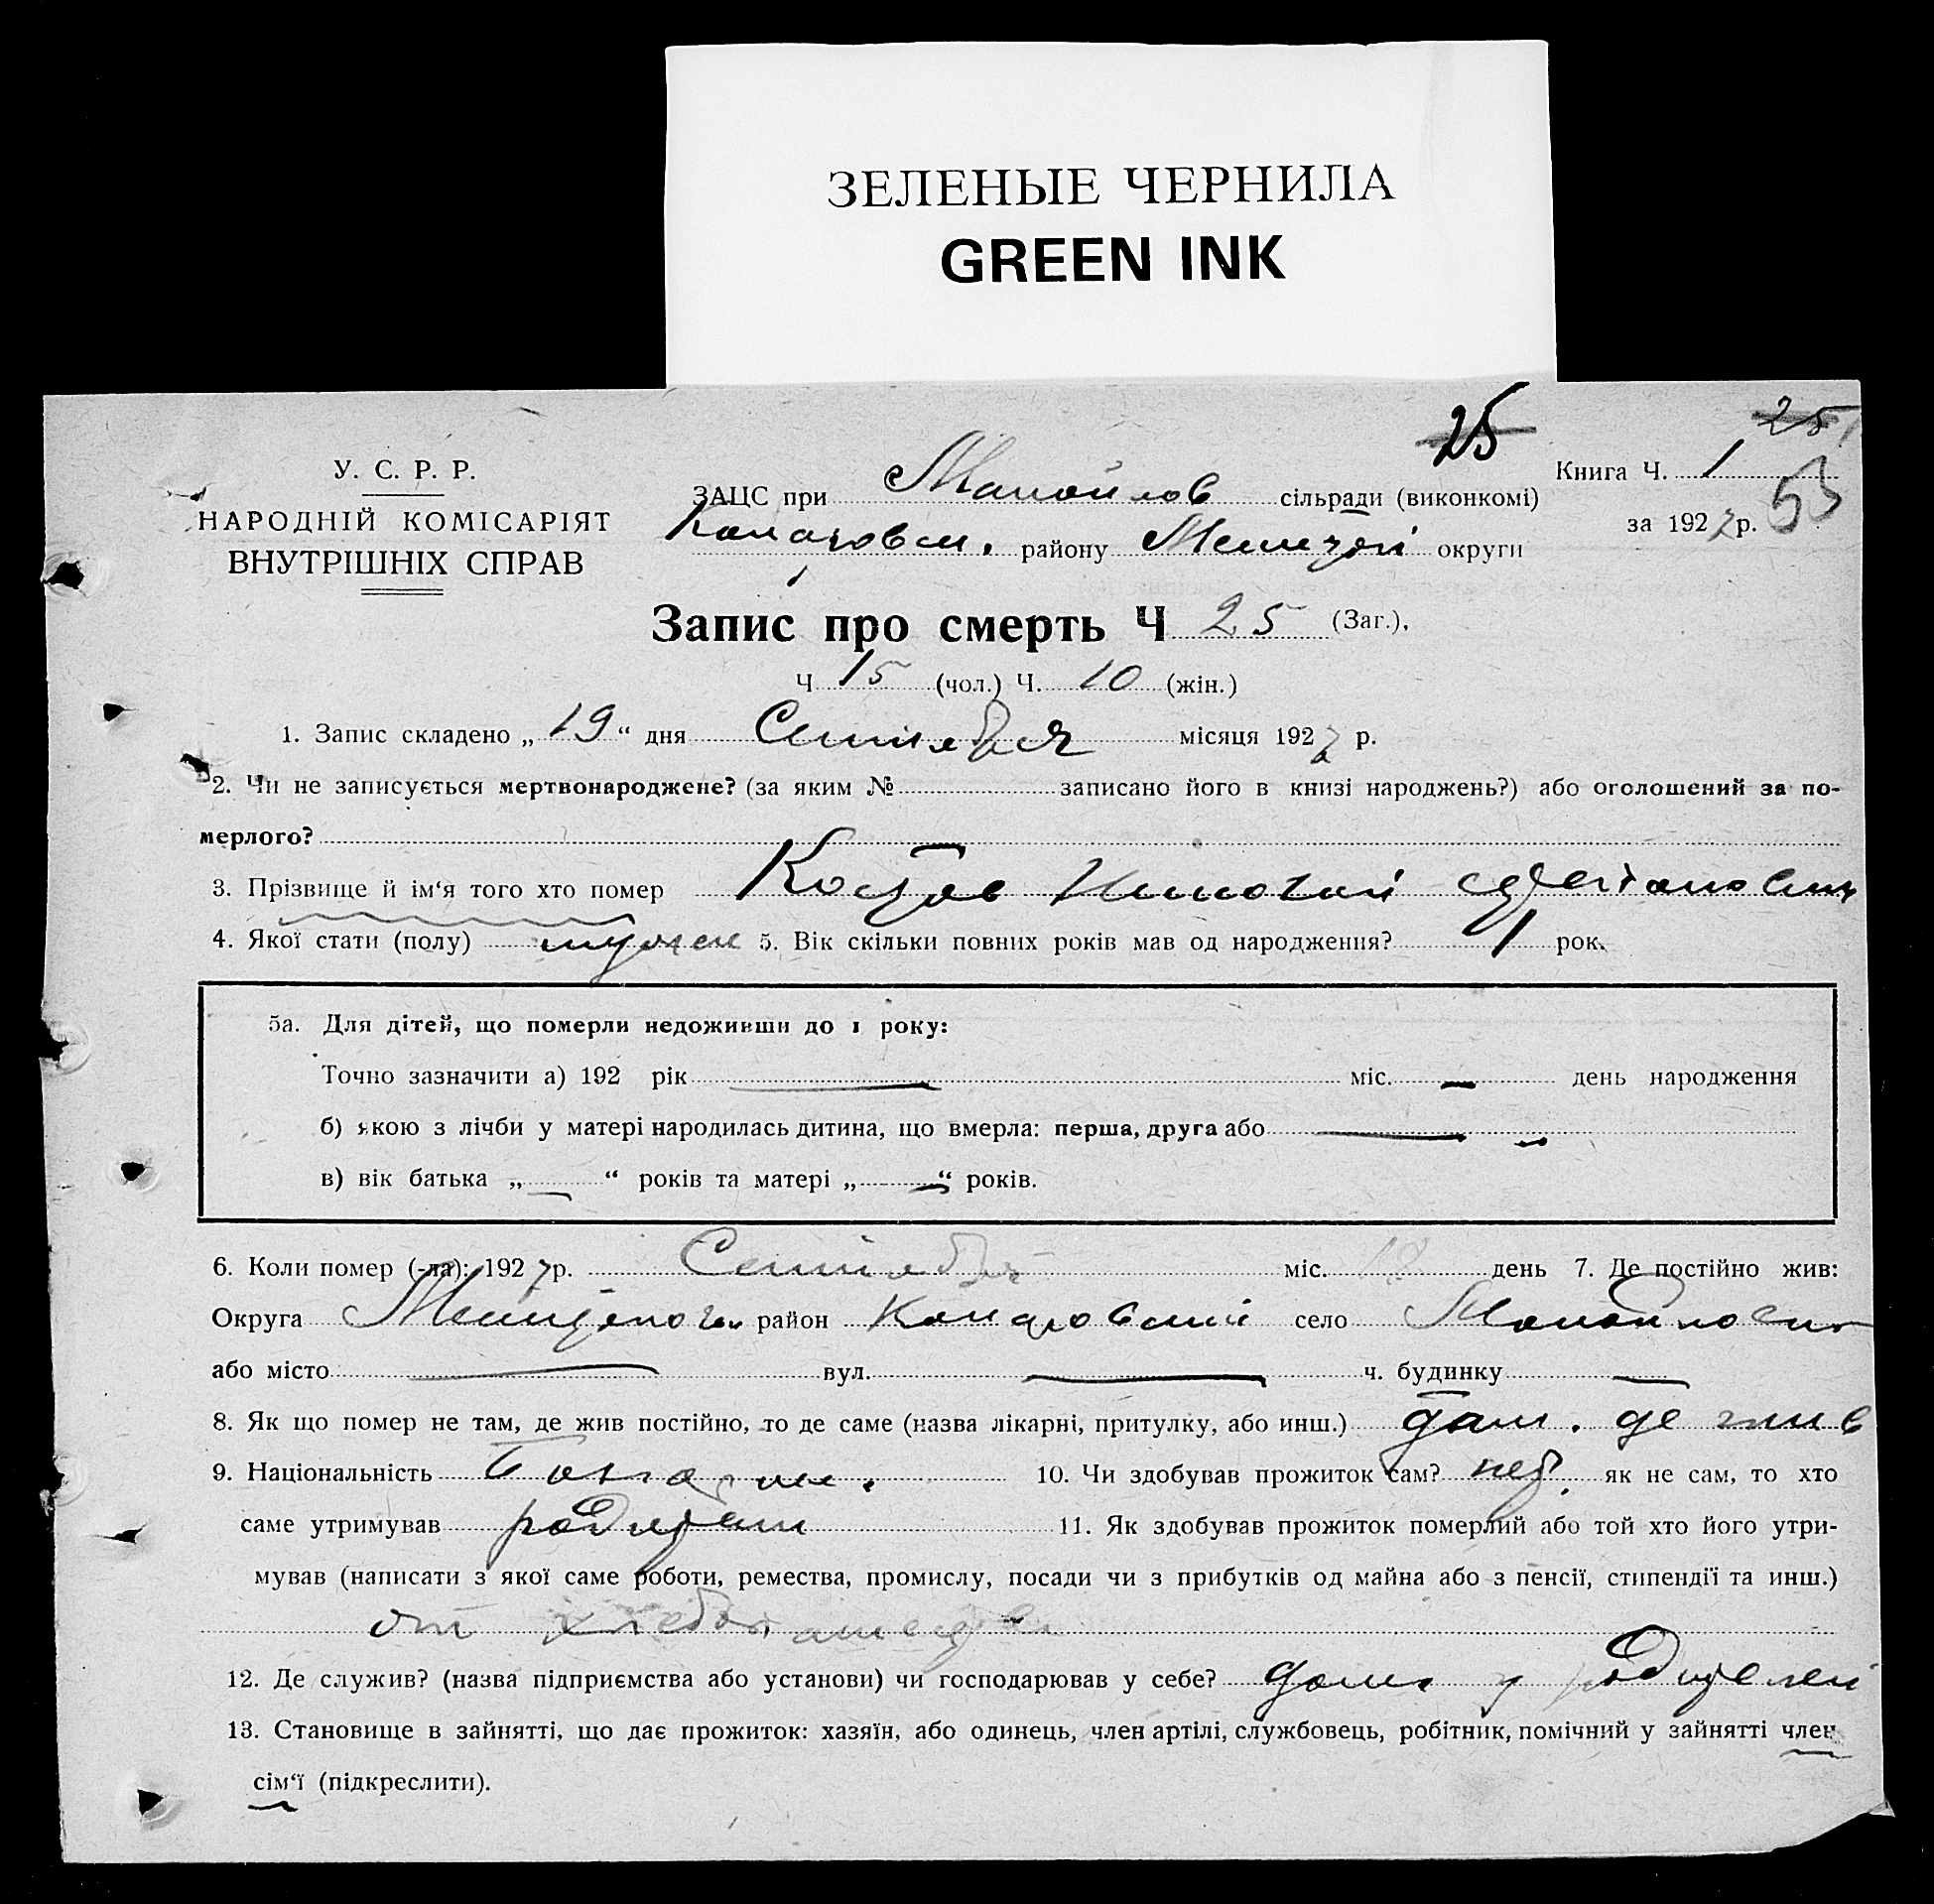 ЗЕЛЕНЫЕ ЧЕРНИЛА
GREEN INK
25
25
У. С. Р. Р.
НАРОДНІЙ КОМІСАРІЯТ
ВНУТРІШНІХ СПРАВ
Книга Ч. 1
53
за 1927 р.
ЗАЦС при Манойлов сільради (виконкомі)
району округи
Запис про смерть Ч 25 (Заг.),
Ч 15 (чол.) Ч. 10 (жін.)
1. Запис складено „19“ дня Сентября місяця 1927 р.
2. Чи не записується мертвонароджене? (за яким № записано його в книзі народжень?) або оголошений за по-
мерлого?
3. Прізвище й ім‘я того хто помер Николай
4. Якої стати (полу) мужск 5. Вік скільки повних років мав од народження? 1 рок.
5а. Для дітей, що померли недоживши до 1 року:
Точно зазначити а) 192 рік міс. день народження
б) якою з лічби у матері народилась дитина, що вмерла: перша, друга або
в) вік батька „ “ років та матері „ “ років.
6. Коли помер (-ла): 1927 р. Сентября міс. 18 день 7. Де постійно жив:
Округа район село
або місто вул. ч. будинку
8. Як що помер не там, де жив постійно, то де саме (назва лікарні, притулку, або инш.) там. де жив
9. Національність 10. Чи здобував прожиток сам? нет. як не сам, то хто
саме утримував 11. Як здобував прожиток померлий або той хто його утри-
мував (написати з якої саме роботи, ремества, промислу, посади чи з прибутків од майна або з пенсії, стипендії та инш.)
от хлебопашества
12. Де служив? (назва підприємства або установи) чи господарював у себе? дома у родителей
13. Становище в зайнятті, що дає прожиток: хазяїн, або одинець, член артілі, службовець, робітник, помічний у зайнятті член
сім‘ї (підкреслити).